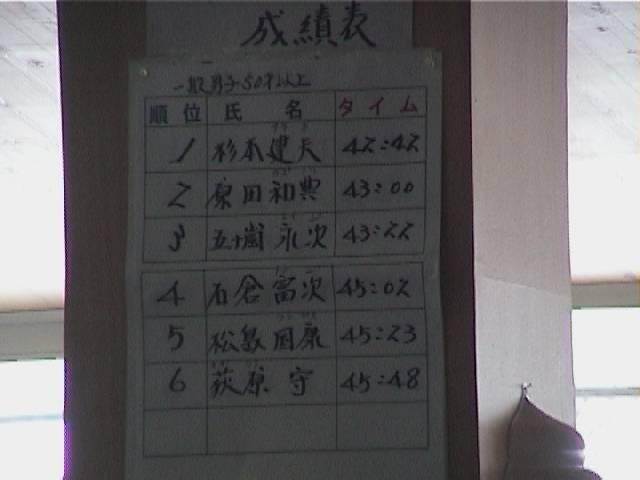 成績表
一般男子50才以上
順位 氏名 タイム
1 杉本建夫 42:42
2 原田和典 43:00
3 五十嵐永次 43:22
4 石倉富次 45:02
5 松島国康 45:23
6 荻原守 45:48